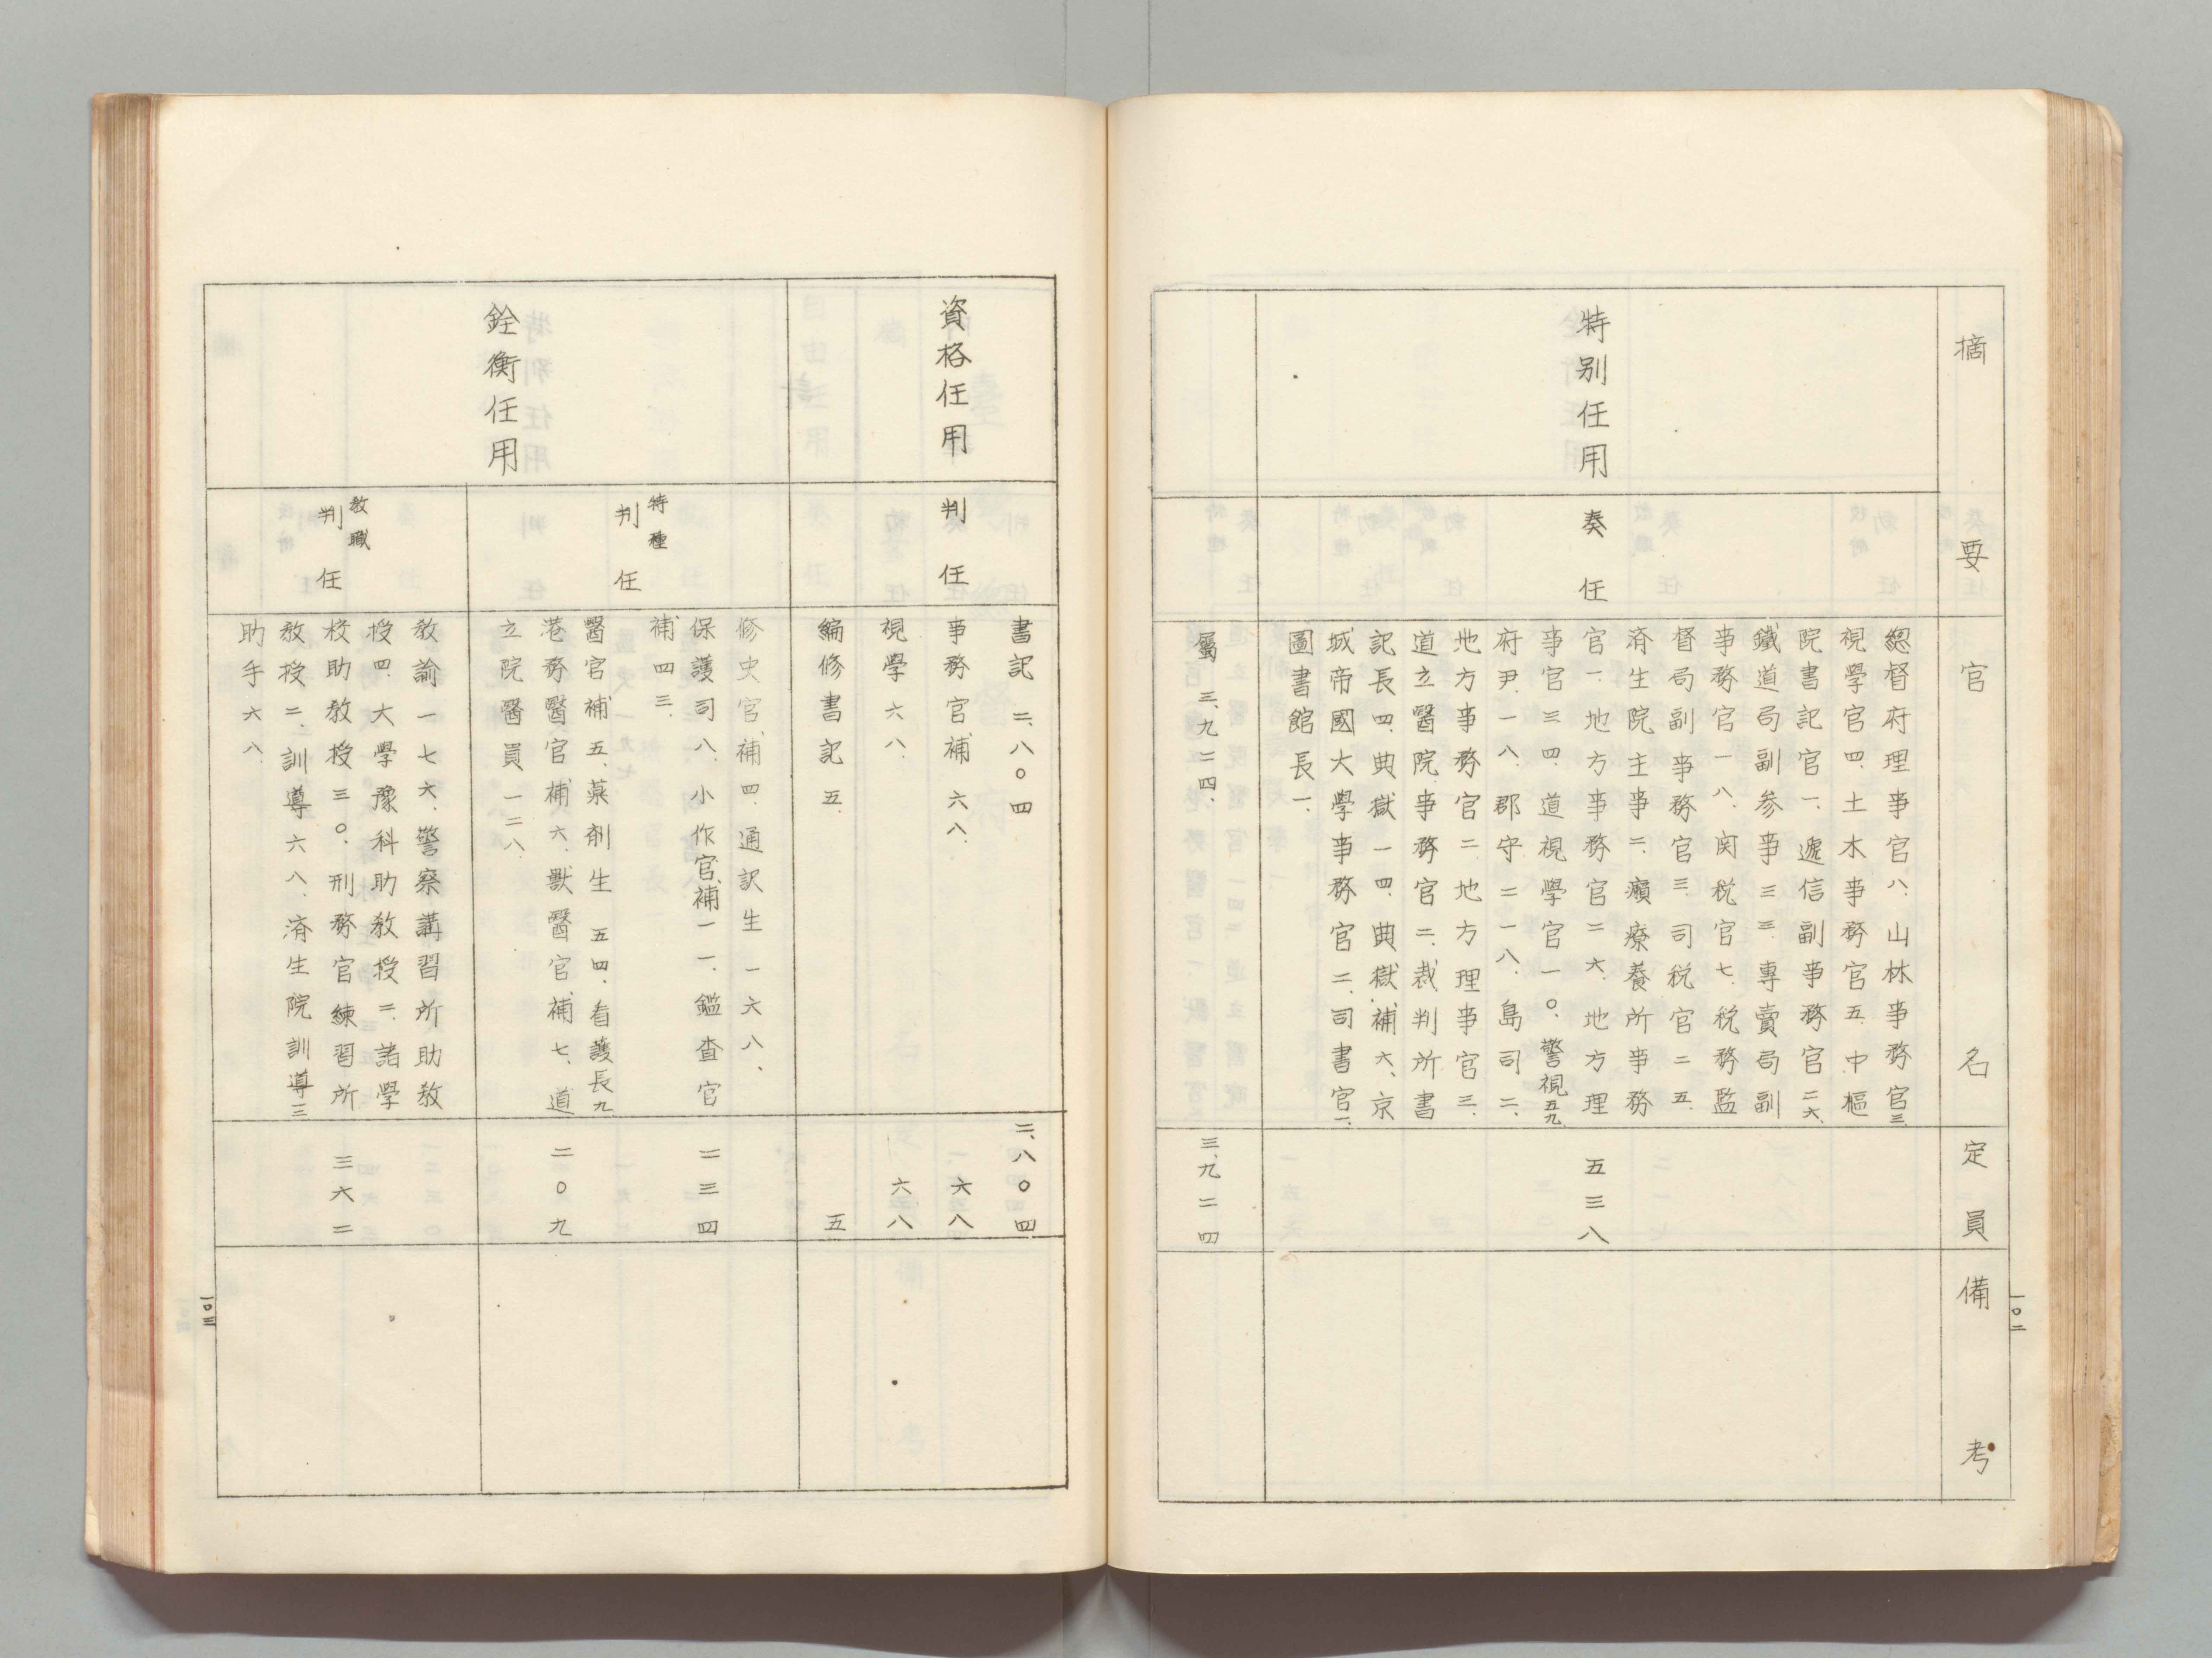 摘要
官名
定員
備考
特別任用
奏任
總督府理事官八、山林事務官三
視學官四、土木事務官五、中樞
院書記官一、遞信副事務官二六、
鐵道局副參事三三、專賣局副
事務官一八、関稅官七、稅務監
督局副事務官三、司稅官二五、
済生院主事二、癩療養所事務
官一、地方事務官二六、地方理
事官三四、道視學官一〇、警視五九、
府尹一八、郡守二一八、島司二、
地方事務官二、地方理事官三、
道立醫院事務官二、裁判所書
記長四、典獄一四、典獄補六、京
城帝國大學事務官二、司書官一、
圖書館長一、
五三八
屬三、九二四、
三、九二四
一〇二
資格任用
判任
書記二、八〇四
事務官補六八、
視學六八、
編修書記五、
二、八〇四
六八
六八
五
銓衡任用
特種
判任
修史官補四、通訳生一六八、
保護司八、小作官補一一、鑑査官
補四三、
醫官補五、薬剤生五四、看護長九
港務醫官補六、獸醫官補七、道
立院醫員一二八、
二三四
二〇九
教職
判任
教諭一七六、警察講習所助教
授四、大學豫科助教授二、諸學
校助教授三〇、刑務官練習所
教授二、訓導六八、済生院訓導三
助手六八、
三六二
一〇三